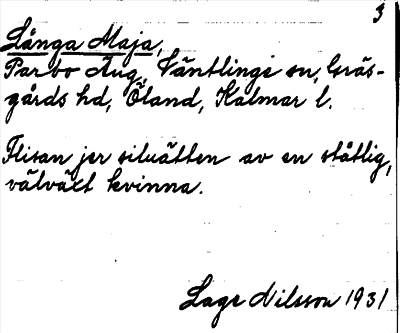 3
Långa Maja,
Parbo Äng, Väntlinge sn, Gräs-
gårds hd, Öland, Kalmar l.
Flisan jer siluätten av en ståtlig,
välväxt kvinna.
Lage Nilsson 1931